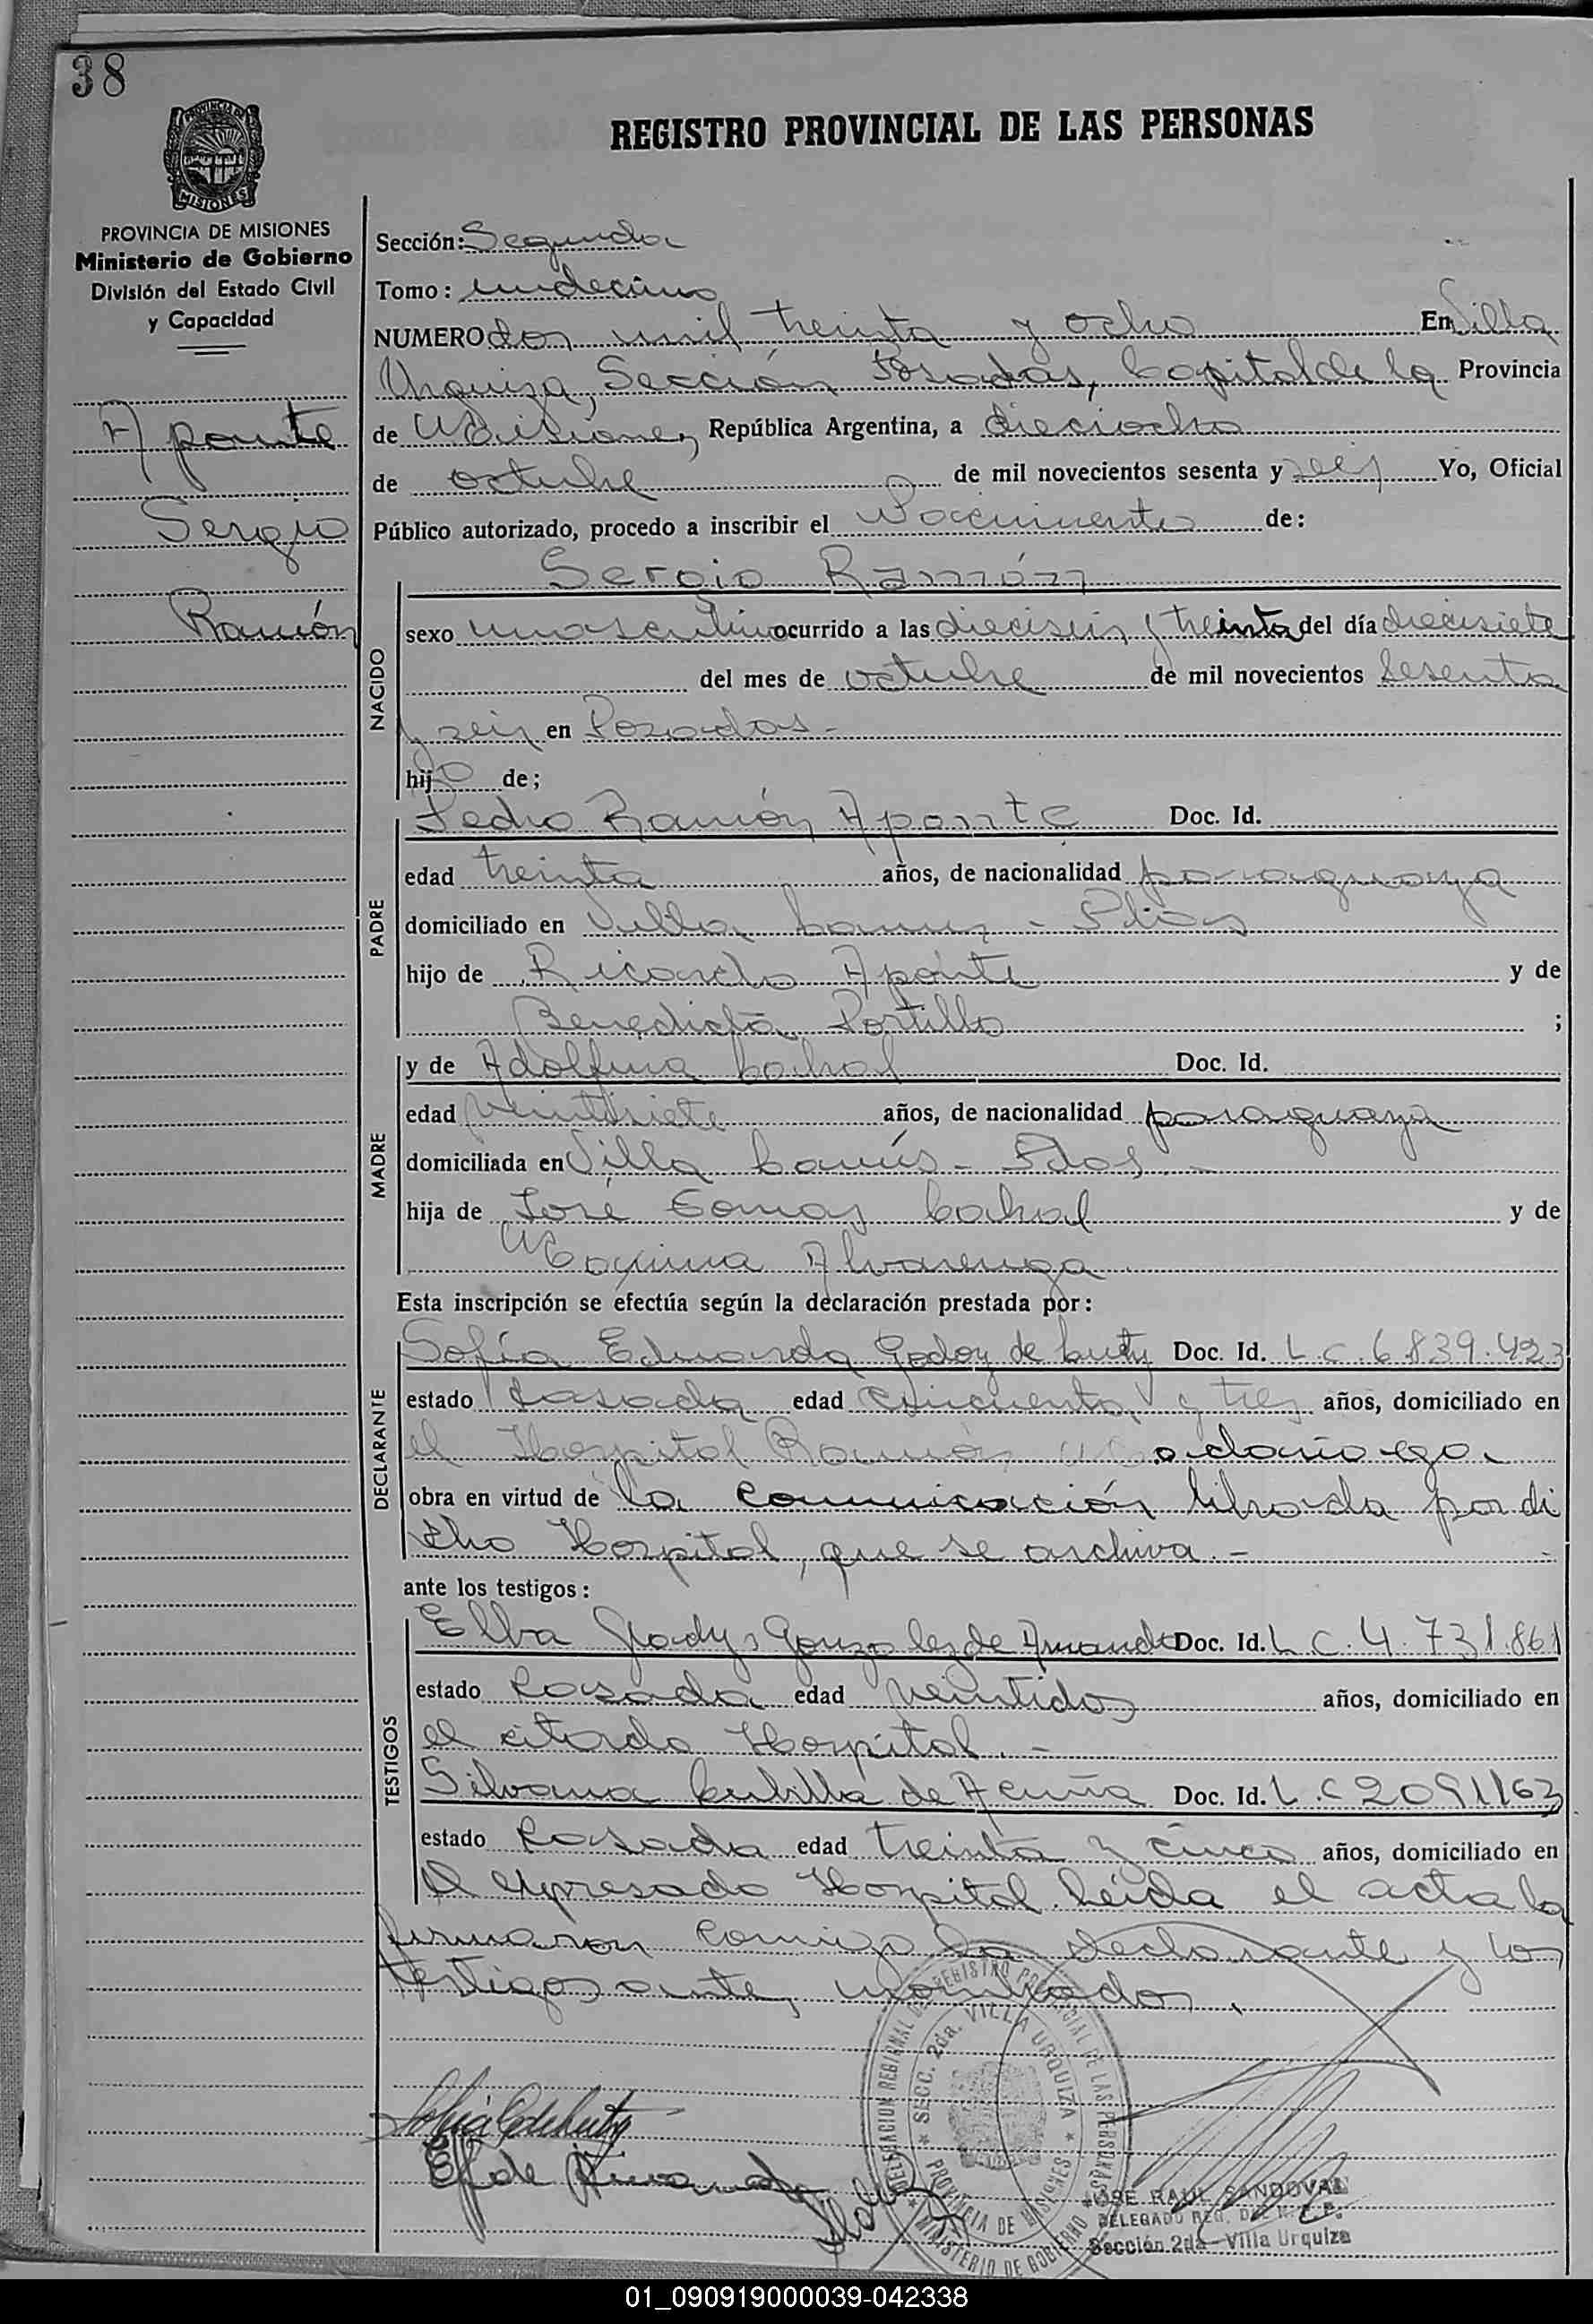 38
REGISTRO PROVINCIAL DE LAS PERSONAS
MISIONES
PROVINCIA DE MISIONES
Ministerio de Gobierno
División del Estado Civil
y Capacidad
Aponte
Sergio
Ramón
Sección: Segunda
Tomo: undecimo
NUMERO dos mil treinta y ocho En Villa
Urquiza, Sección Posadas, Capital de la Provincia
de Misiones, República Argentina, a dieciocho
de octubre de mil novecientos sesenta y seis Yo, Oficial
Público autorizado, procedo a inscribir el Nacimiento de:
Sergio Ramón
NACIDO
sexo masculino ocurrido a las dieciseis y treinta del día diecisiete
del mes de octubre de mil novecientos sesenta
y seis en Posadas.-
hijo de;
PADRE
Pedro Ramón Aponte Doc. Id.
edad treinta años, de nacionalidad paraguaya
domiciliado en Villa Lanus -
hijo de Ricardo Aponte y de
Benedicta Portillo ;
MADRE
y de Adolfina Cabral Doc. Id.
edad veintisiete años, de nacionalidad paraguaya
domiciliada en Villa Lanús - Pdas.-
hija de José Tomas Cabral y de
Maxima Alvarenga
Esta inscripción se efectúa según la declaración prestada por:
DECLARANTE
Sofía Eduarda Godoy de Doc. Id. L.C. 6.839.423
estado Casada edad cincuenta y tres años, domiciliado en
el Hospital Ramón Madariaga.
obra en virtud de la comunicación librada por di
cho Hospital, que se archiva.-
ante los testigos:
TESTIGOS
Elba Gladys Gonzalez de Doc. Id. L.C. 4.731.861
estado Casada edad veintidos años, domiciliado en
el citado Hospital.-
Silvana Cubilla de Acuña Doc. Id. L.C 2091163
estado Casada edad treinta y cinco años, domiciliado en
el expresado Hospital. Leída el acta la
firmaron conmigo la declarante y los
testigos antes nombrados.
DELEGACION REGIONAL DEL REGISTRO PROVINCIAL DE LAS PERSONAS
SECC. 2da. VILLA URQUIZA
PROVINCIA DE MISIONES
MINISTERIO DE GOBIERNO
JOSE RAUL SANDOVAL
DELEGADO REG. DEL R. P. P.
Sección 2da - Villa Urquiza
01_090919000039-042338